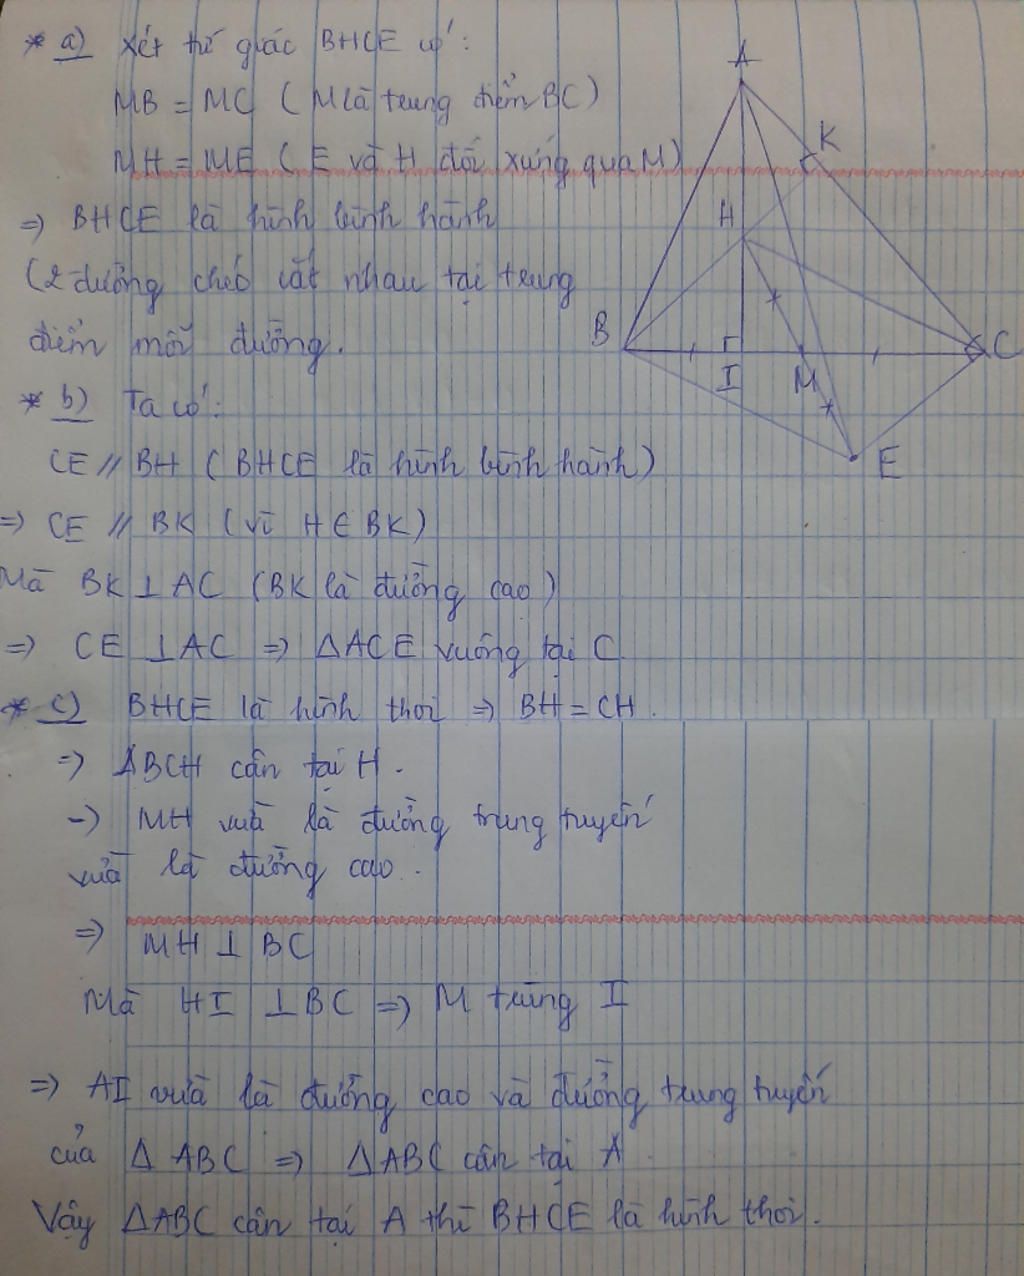 * a) Xét tứ giác BHCE có:
MB = MC ( M là trung điểm BC )
MH = ME ( E và H đối xứng qua M )
=> BHCE là hình bình hành
( 2 đường chéo cắt nhau tại trung
điểm mỗi đường.
* b) Ta có:
CE // BH ( BHCE là hình bình hành )
=> CE // BK ( vì H ∈ BK )
Mà BK ⊥ AC ( BK là đường cao )
=> CE ⊥ AC => ΔACE vuông tại C
* c) BHCE là hình thoi => BH = CH.
=> ΔBCH cân tại H.
-> MH vừa là đường trung tuyến
vừa là đường cao.
=> MH ⊥ BC
Mà HI ⊥ BC => M trùng I
=> AI vừa là đường cao và đường trung tuyến
của Δ ABC => ΔABC cân tại A.
Vậy ΔABC cân tại A thì BHCE là hình thoi.
A
K
H
B
I
M
C
E